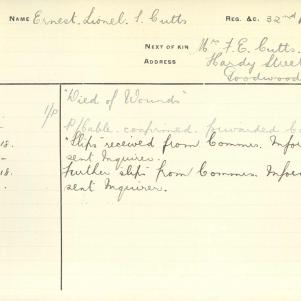 NAME Ernest. Lionel. S. Cutts REG. &C. 32nd
NEXT OF KIN Mr F. E. Cutts.
ADDRESS Hardy Street
Goodwood
1/P "Died of Wounds"
P/Cable. confirmed. forwarded
18. "Slips" received from Commrs. Infor
sent Inquirer.
18. further slips from Commrs. Infor
sent Inquirer.